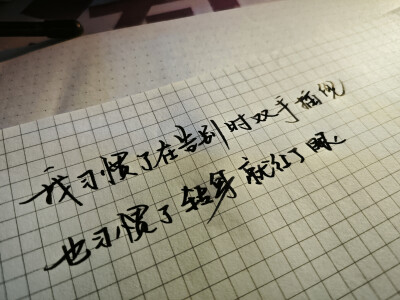 我习惯了在告别时双手插兜
也习惯了转身就红了眼